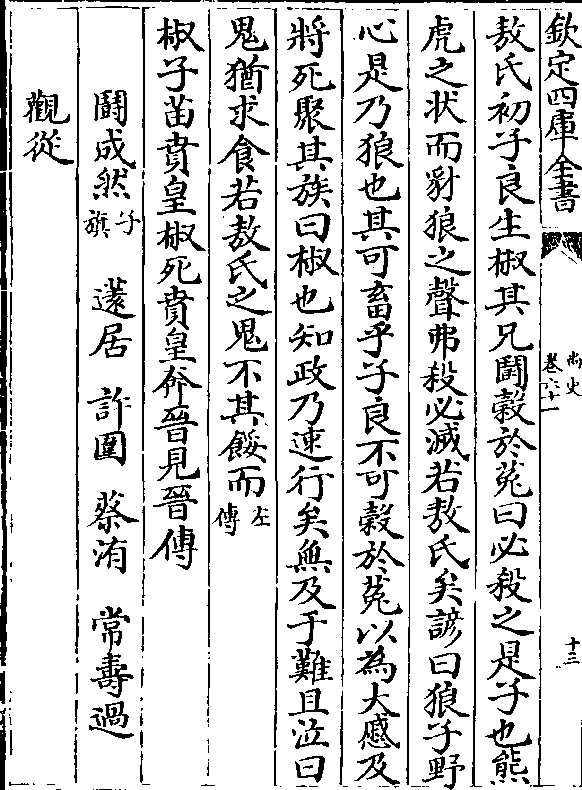 欽定四庫全書
尚史
卷六十一
十三
敖氏初子良生椒其兄鬬榖於菟曰必殺之是子也熊
虎之狀而豺狼之聲弗殺必滅若敖氏矣諺曰狼子野
心是乃狼也其可畜乎子良不可榖於菟以為大慼及
將死聚其族曰椒也知政乃速行矣無及于難且泣曰
鬼猶求食若敖氏之鬼不其餒而左傳
椒子苗賁皇椒死賁皇奔晉見晉傳
鬬成然子旗 薳居 許圍 蔡洧 常壽過
觀從